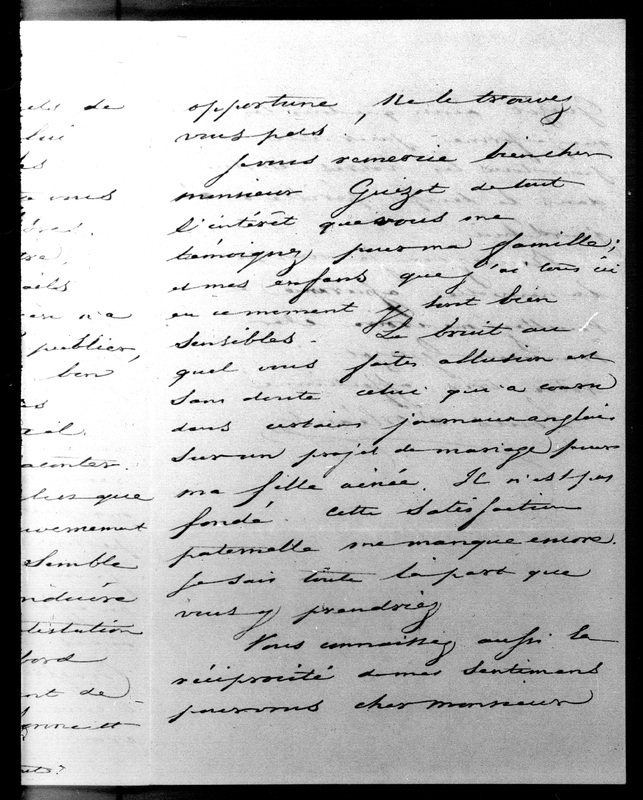 els de
lui
les
vous
tre,
ails
n'a
publier,
ben
es
aconter
que
uvernement
semble
nduire
bord
nt de
opportune, Ne le trouvez
vous pas,
Je vous remercie bien cher
monsieur Guizot de tout
l'intérêt que vous me
témoignez pour ma famille;
et mes enfans que j'ai tous ici
en ce moment y sont bien
sensibles. Le bruit au
quel vous faites allusion est
sans doute celui qui a couru
dans certains journaux anglais
sur un projet de mariage pour
ma fille ainée. Il n'est pas
fondé. Cette satisfaction
paternelle me manque encore.
Je sais toute la part que
vous y prendriez
Vous connaissez aussi la
réciprocité de mes sentimens
pour vous cher monsieur